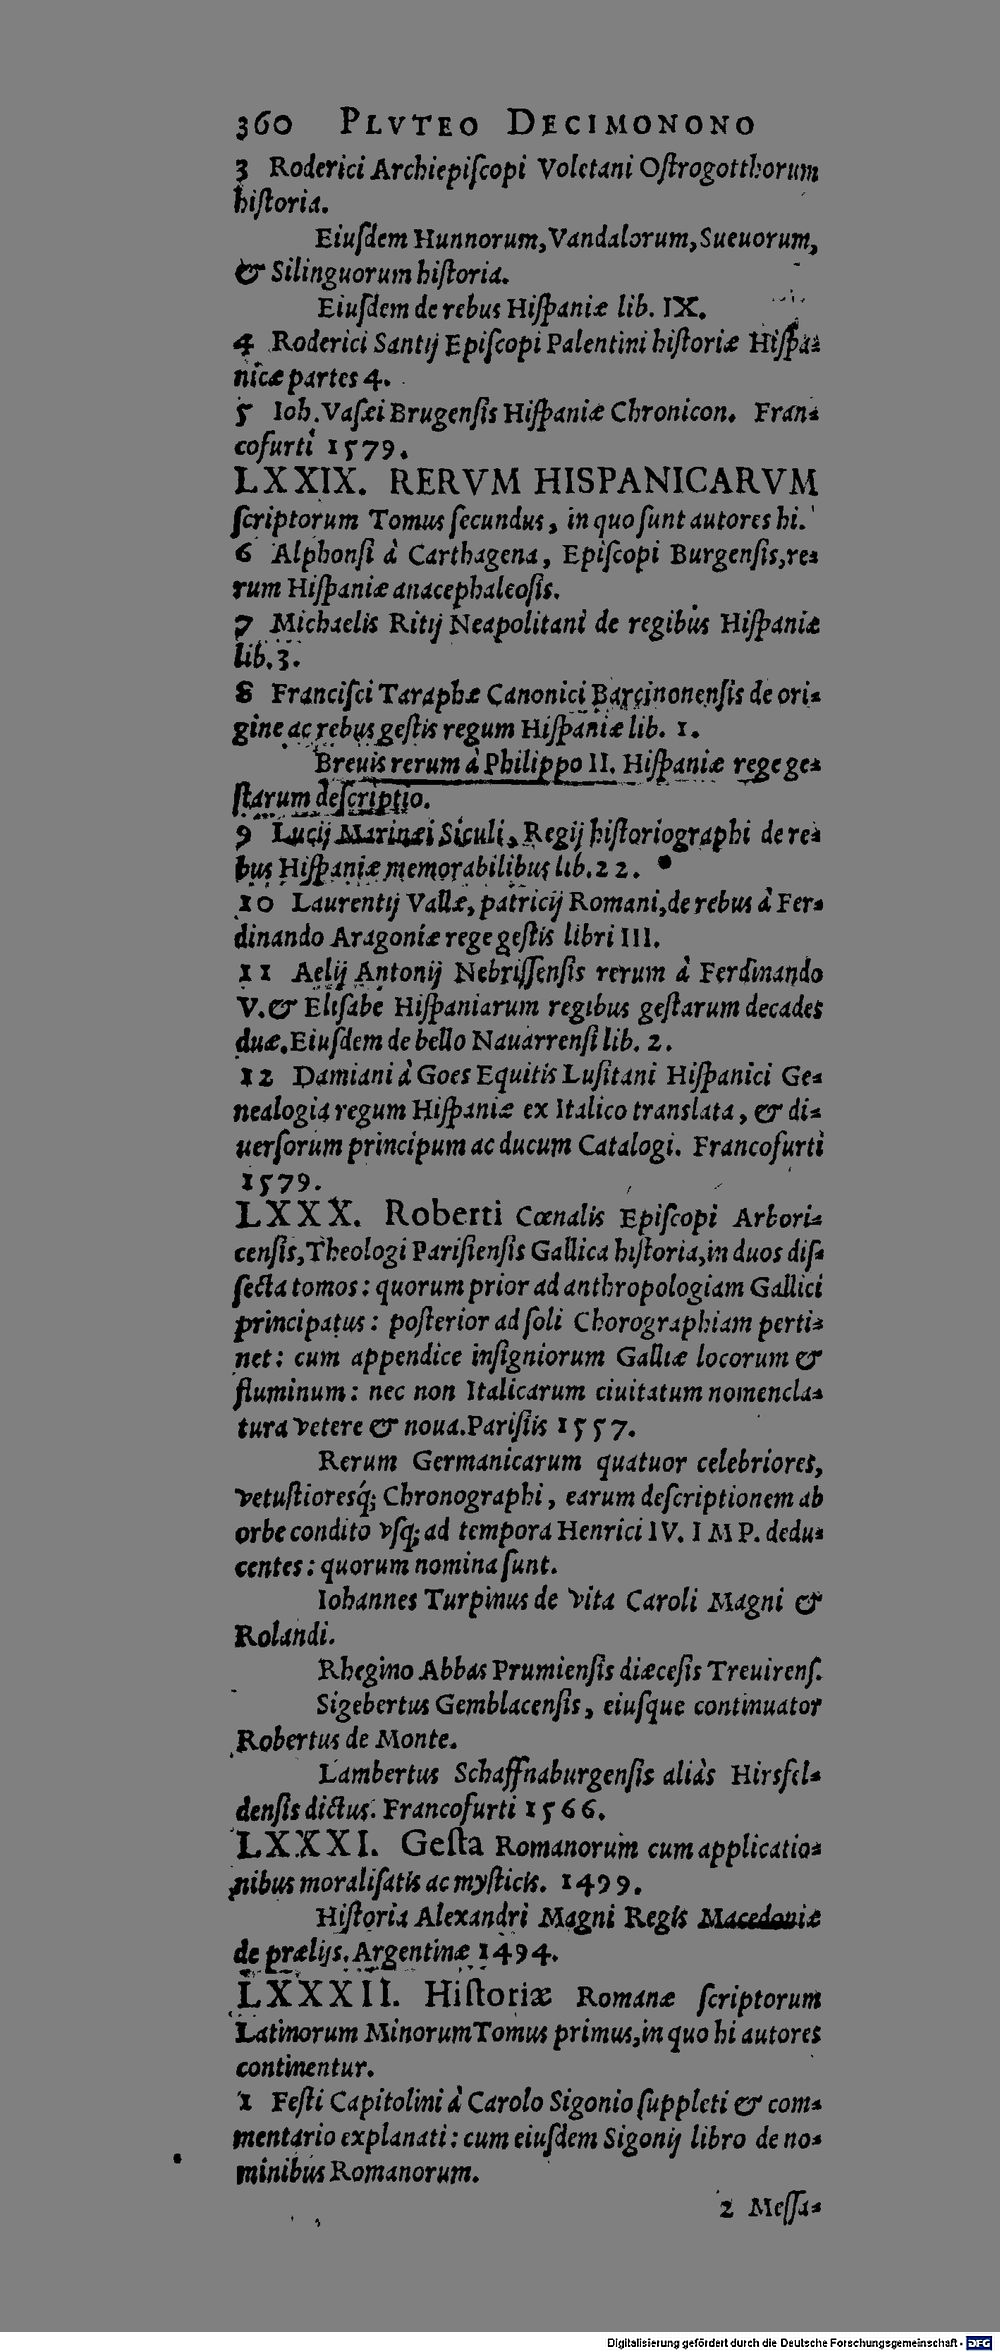 360 PLVTEO DECIMONONO
3 Roderici Archiepiſcopi Voletani Oſtrogotthorum
hiſtoria.
Eiuſdem Hunnorum, Vandalorum, Sueuorum,
& Silinguorum hiſtoria.
Eiuſdem de rebus Hiſpaniæ lib. IX.
4 Roderici Santij Epiſcopi Palentini hiſtoriæ Hiſpa-
nicæ partes 4.
5 Ioh. Vaſæi Brugenſis Hiſpaniæ Chronicon. Fran-
cofurti 1579.
LXXIX. RERVM HISPANICARVM
ſcriptorum Tomus ſecundus, in quo ſunt autores hi.
6 Alphonſi à Carthagena, Epiſcopi Burgenſis, re-
rum Hiſpaniæ anacephaleoſis.
7 Michaelis Ritij Neapolitani de regibus Hiſpaniæ
lib. 3.
8 Franciſci Taraphæ Canonici Barcinonenſis de ori-
gine ac rebus geſtis regum Hiſpaniæ lib. 1.
Breuis rerum à Philippo II. Hiſpaniæ rege ge-
ſtarum deſcriptio.
9 Lucij Marinæi Siculi, Regij hiſtoriographi de re-
bus Hiſpaniæ memorabilibus lib. 22.
10 Laurentij Vallæ, patricij Romani, de rebus à Fer-
dinando Aragoniæ rege geſtis libri III.
11 Aelij Antonij Nebriſſenſis rerum à Ferdinando
V. & Eliſabe Hiſpaniarum regibus geſtarum decades
duæ. Eiuſdem de bello Nauarrenſi lib. 2.
12 Damiani à Goes Equitis Luſitani Hiſpanici Ge-
nealogia regum Hiſpaniæ ex Italico translata, & di-
uerſorum principum ac ducum Catalogi. Francofurti
1579.
LXXX. Roberti Cœnalis Epiſcopi Arbori-
cenſis, Theologi Pariſienſis Gallica hiſtoria, in duos diſ-
ſecta tomos: quorum prior ad anthropologiam Gallici
principatus: poſterior ad ſoli Chorographiam perti-
net: cum appendice inſigniorum Galliæ locorum &
fluminum: nec non Italicarum ciuitatum nomencla-
tura vetere & noua. Pariſiis 1557.
Rerum Germanicarum quatuor celebriores,
vetuſtioresq́; Chronographi, earum deſcriptionem ab
orbe condito vſq; ad tempora Henrici IV. IMP. dedu-
centes: quorum nomina ſunt.
Iohannes Turpinus de vita Caroli Magni &
Rolandi.
Rhegino Abbas Prumienſis diæceſis Treuirenſ.
Sigebertus Gemblacenſis, eiuſque continuator
Robertus de Monte.
Lambertus Schaffnaburgenſis aliàs Hirsfel-
denſis dictus. Francofurti 1566.
LXXXI. Geſta Romanorum cum applicatio-
nibus moraliſatis ac myſticis. 1499.
Hiſtoria Alexandri Magni Regis Macedoniæ
de prælijs. Argentinæ 1494.
LXXXII. Hiſtoriæ Romanæ ſcriptorum
Latinorum Minorum Tomus primus, in quo hi autores
continentur.
1 Feſti Capitolini à Carolo Sigonio ſuppleti & com-
mentario explanati: cum eiuſdem Sigonij libro de no-
minibus Romanorum.
2 Meſſa-
Digitalisierung gefördert durch die Deutsche Forschungsgemeinschaft - DFG